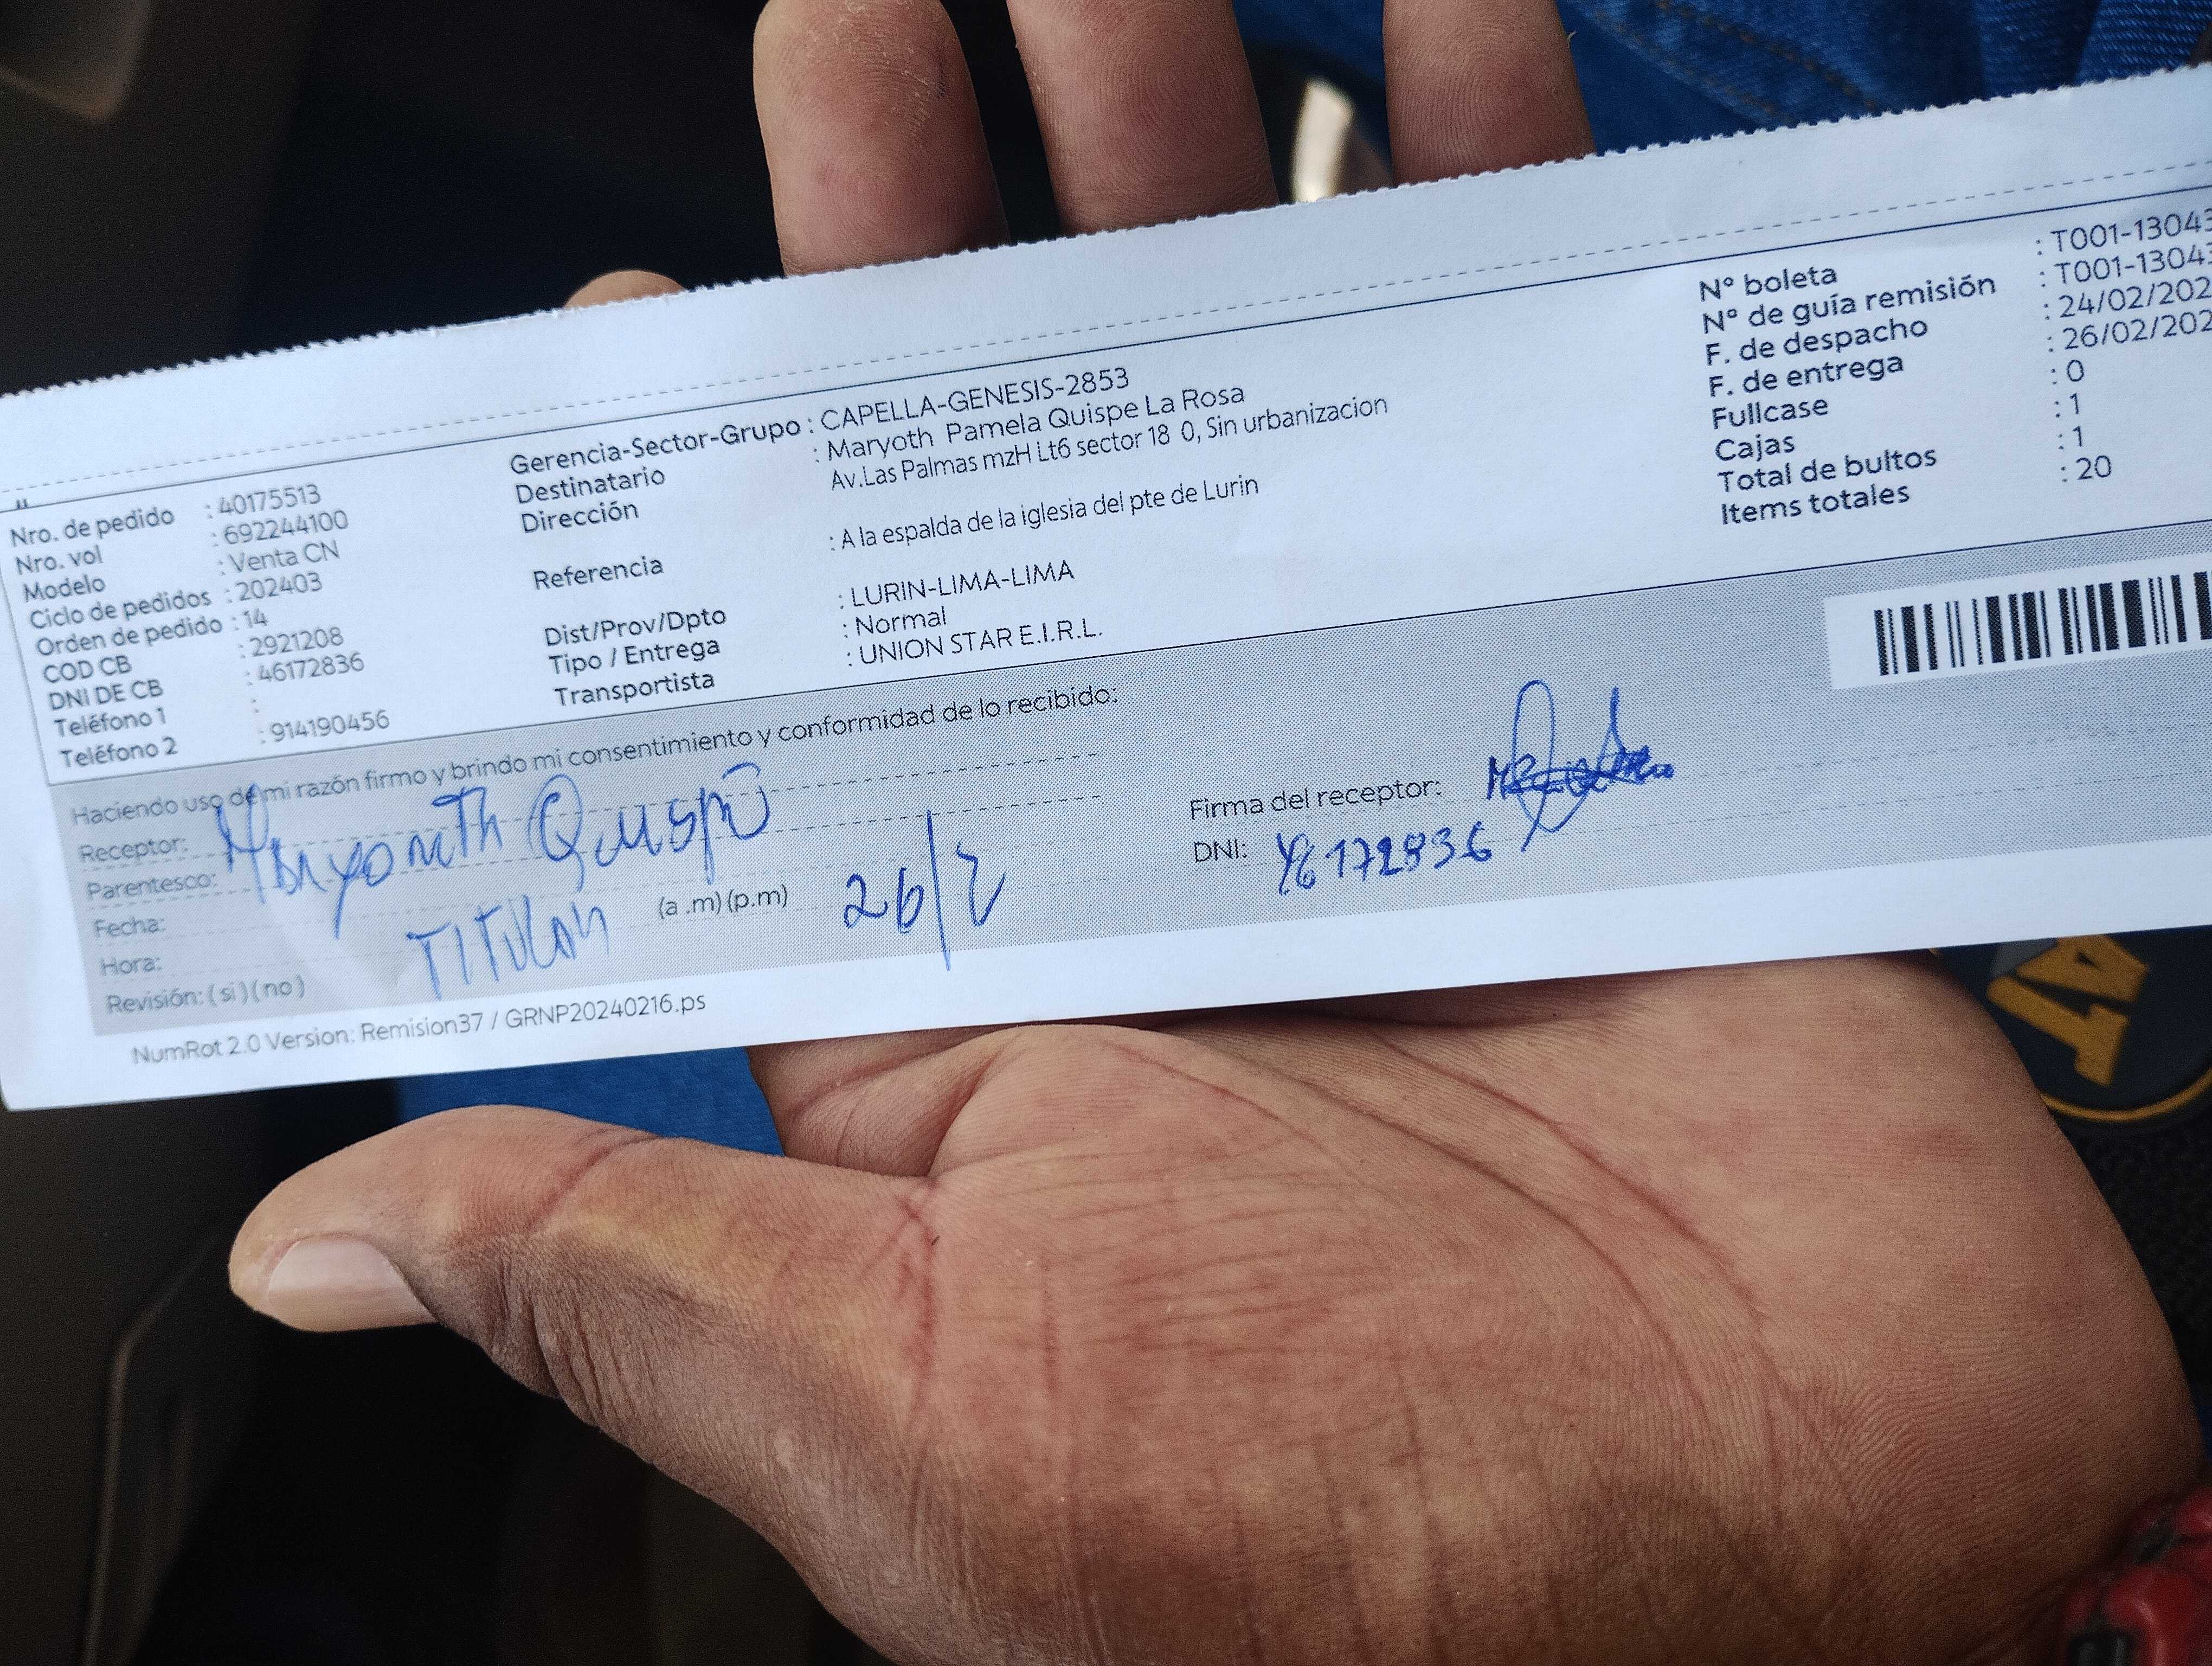 Nro. de pedido : 40175513
Nro. vol : 692244100
Modelo : Venta CN
Ciclo de pedidos : 202403
Orden de pedido : 14
COD CB : 2921208
DNI DE CB : 46172836
Teléfono 1 :
Teléfono 2 : 914190456
Gerencia-Sector-Grupo : CAPELLA-GENESIS-2853
Destinatario : Maryoth Pamela Quispe La Rosa
Dirección Av.Las Palmas mzH Lt6 sector 18 0, Sin urbanizacion
Referencia : A la espalda de la iglesia del pte de Lurin
Dist/Prov/Dpto : LURIN-LIMA-LIMA
Tipo / Entrega : Normal
Transportista : UNION STAR E.I.R.L.
N° boleta : T001-13043
N° de guía remisión : T001-1304
F. de despacho : 24/02/202
F. de entrega : 26/02/202
Fullcase : 0
Cajas : 1
Total de bultos : 1
Items totales : 20
Haciendo uso de mi razón firmo y brindo mi consentimiento y conformidad de lo recibido:
Receptor: Maryoth Quispe
Parentesco:
Fecha: TITULAR (a .m)(p.m) 26/2
Hora:
Revisión: ( si )( no )
Firma del receptor:
DNI: 46172836
NumRot 2.0 Version: Remision37 / GRNP20240216.ps
AT